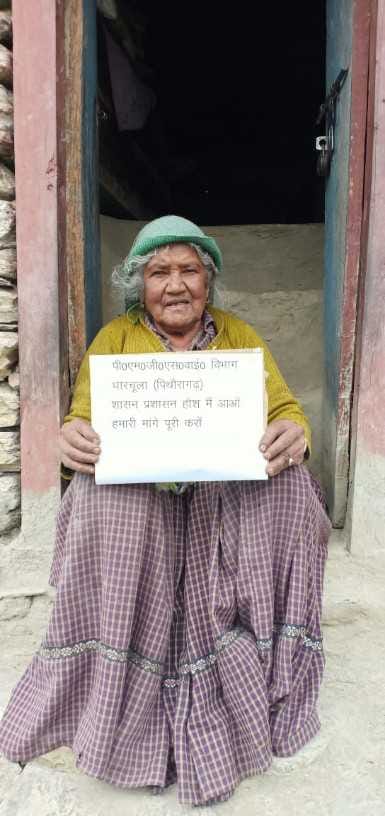 पी0एम0जी0एस0वाई0 विभाग
धारचूला (पिथौरागढ़)
शासन प्रशासन होश में आओं
हमारी मांगे पूरी करों